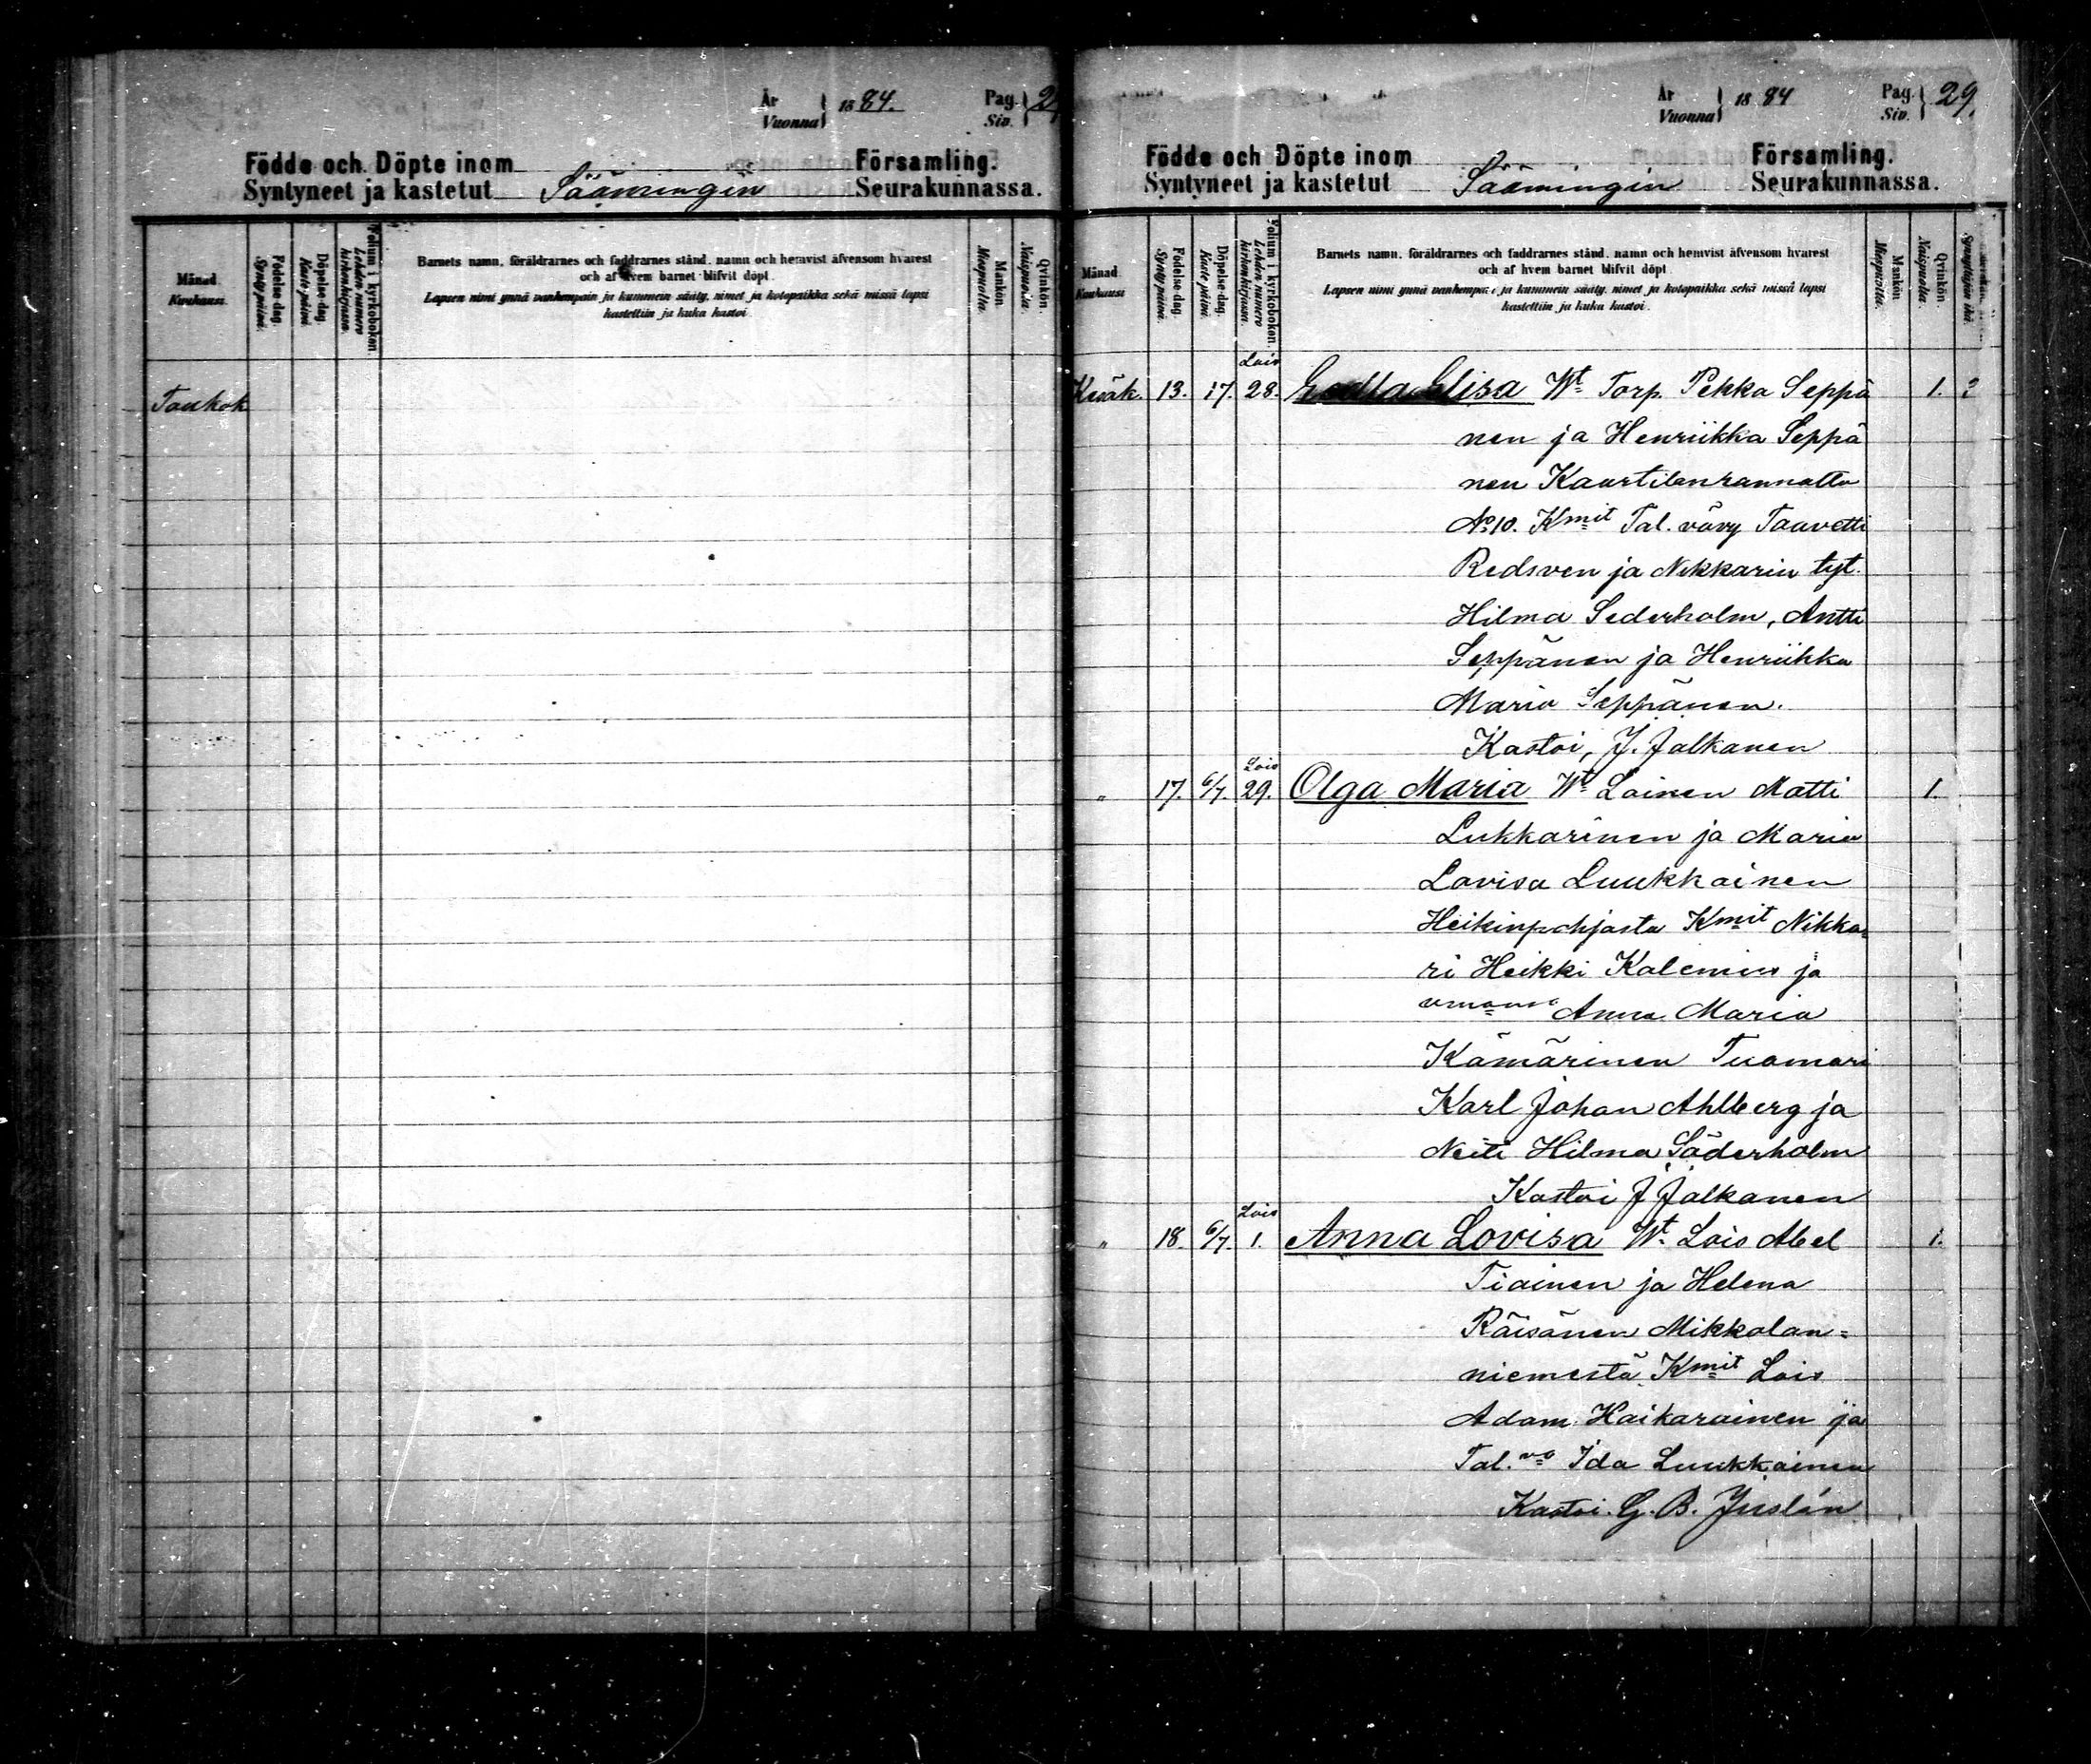 År
Vuonna 1884.
Pag.
Siv. 2
Födde och Döpte inom Församling.
Syntyneet ja kastetut Sääningin Seurakunnassa.
Månad.
Kuukausi.
Födelse-dag.
Synty-päivä.
Döpelse-dag.
Kaste-päivä
Folium i kyrkoboken.
Lehden numero kirkonkirjassa.
Barnets namn, föräldrarnes och faddrarnes stånd, namn och hemvist äfvensom hvarest
och af hvem barnet blifvit döpt.
Lapsen nimi ynnä vanhempain ja kummein sääty, nimet ja kotopaikka sekä missä lapsi
kastettiin ja kuka kastoi.
Mankön.
Miespuolta.
Qvinkön.
Naispuolta.
Toukok
År
Vuonna 1884
Pag.
Siv. 29.
Födde och Döpte inom Församling.
Syntyneet ja kastetut Säämingin Seurakunnassa.
Månad
Kuukausi
Födelse-dag.
Synty-päivä.
Döpelse-dag.
Kaste-päivä.
Folium i kyrkoboken.
Lehden numero kirkonkirjassa.
Barnets namn, föräldrarnes och faddrarnes stånd, namn och hemvist äfvensom hvarest
och af hvem barnet blifvit döpt.
Lapsen nimi ynnä vanhempain ja kummein sääty, nimet ja kotopaikka sekä missä lapsi
kastettiin ja kuka kastoi.
Mankön
Miespuolta.
Qvinkön
Naispuolta.
Synnyttäjän ikä.
Lois
Kesäk. 13. 17. 28. Elisa Wt Torp. Pekka Seppä 1.
nen ja Henriikka Seppä
nen Kaartilanrannalta
No 10. Kmit Tal. vävy Taavetti
Redsven ja Nikkarin tyt.
Hilma Sederholm, Antti
Seppänen ja Henriikka
Maria Seppänen.
Kastoi, J. Jalkanen
Lois
" 17. 6/7. 29. Olga Maria Wt Loinen Matti 1.
Lukkarinen ja Maria
Lovisa Luukkainen
Heikinpohjasta Kmit Nikka=
ri Heikki Kalenius ja
Anna Maria
Kämärinen Tuomari
Karl Johan Ahlberg ja
Neiti Hilma Söderholm
Kastoi J Jalkanen
Lois
" 18. 6/7. 1. Anna Lovisa Wt Lois Abel 1.
Tiainen ja Helena
Räisänen Mikkolan=
niemestä Kmit Lois
Adam Haikarainen ja
Tal. vo Ida Luukkainen
Kastoi G. B. Juslén